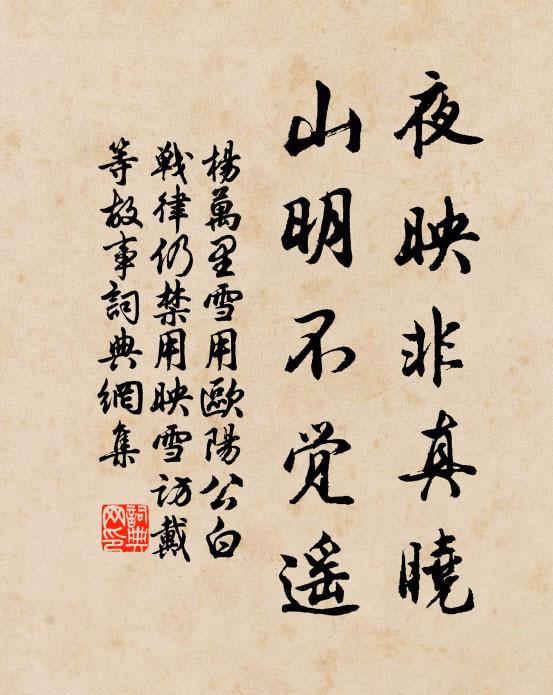 夜映非真曉
山明不觉遥
楊萬里雪用歐陽公白
戰律仍禁用映雪訪戴
等故事詞典網集
詞典網印